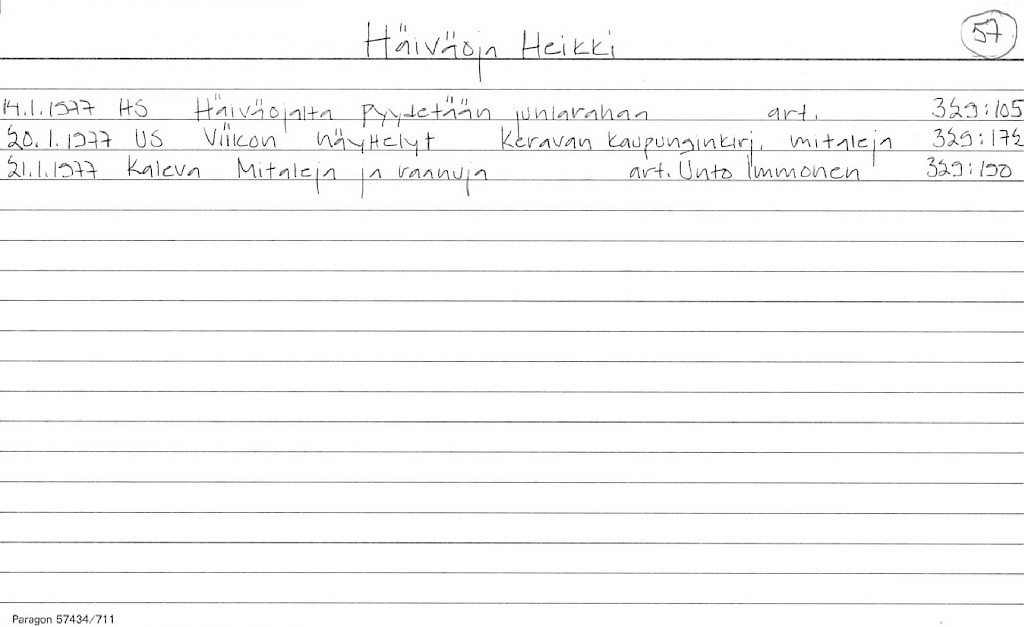 Häiväoja Heikki 57
14.1.1977 HS Häiväojalta pyydetään juhlarahaa art. 329:105
20.1.1977 US Viikon näyttelyt Keravan kaupunginkirj. mitaleja 329:172
21.1.1977 Kaleva Mitaleja ja raanuja art. Unto Immonen 329:190
Paragon 57434/711